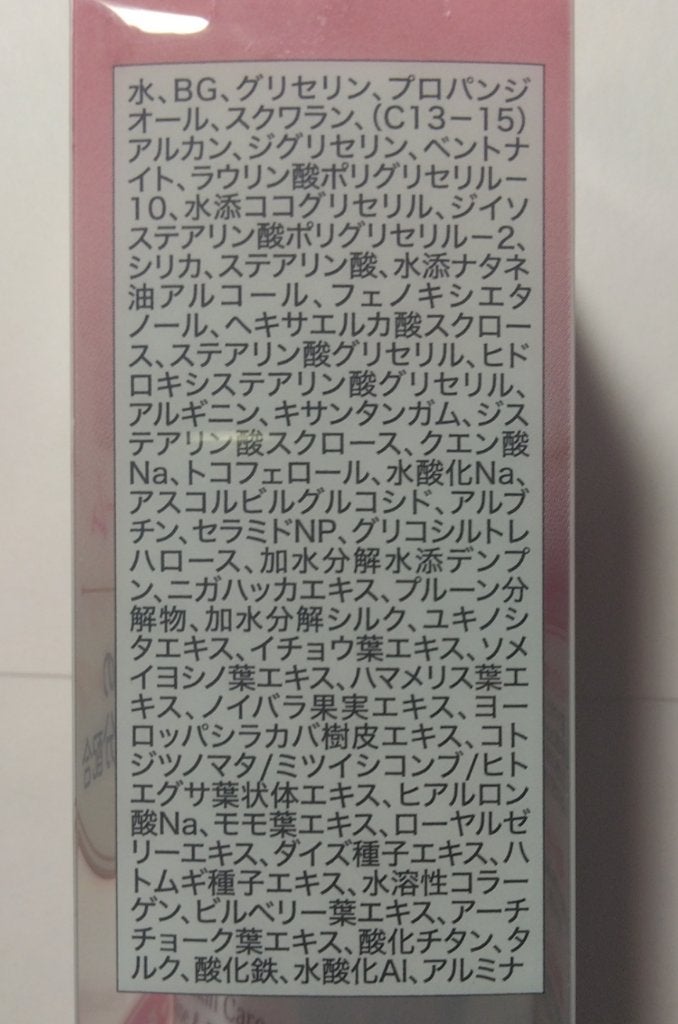 水、BG、グリセリン、プロパンジ
オール、スクワラン、(C13－15)
アルカン、ジグリセリン、ベントナ
イト、ラウリン酸ポリグリセリル－
10、水添ココグリセリル、ジイソ
ステアリン酸ポリグリセリル－2、
シリカ、ステアリン酸、水添ナタネ
油アルコール、フェノキシエタ
ノール、ヘキサエルカ酸スクロー
ス、ステアリン酸グリセリル、ヒド
ロキシステアリン酸グリセリル、
アルギニン、キサンタンガム、ジス
テアリン酸スクロース、クエン酸
Na、トコフェロール、水酸化Na、
アスコルビルグルコシド、アルブ
チン、セラミドNP、グリコシルトレ
ハロース、加水分解水添デンプ
ン、ニガハッカエキス、プルーン分
解物、加水分解シルク、ユキノシ
タエキス、イチョウ葉エキス、ソメ
イヨシノ葉エキス、ハマメリス葉エ
キス、ノイバラ果実エキス、ヨー
ロッパシラカバ樹皮エキス、コト
ジツノマタ/ミツイシコンブ/ヒト
エグサ葉状体エキス、ヒアルロン
酸Na、モモ葉エキス、ローヤルゼ
リーエキス、ダイズ種子エキス、ハ
トムギ種子エキス、水溶性コラー
ゲン、ビルベリー葉エキス、アーチ
チョーク葉エキス、酸化チタン、タ
ルク、酸化鉄、水酸化Al、アルミナ